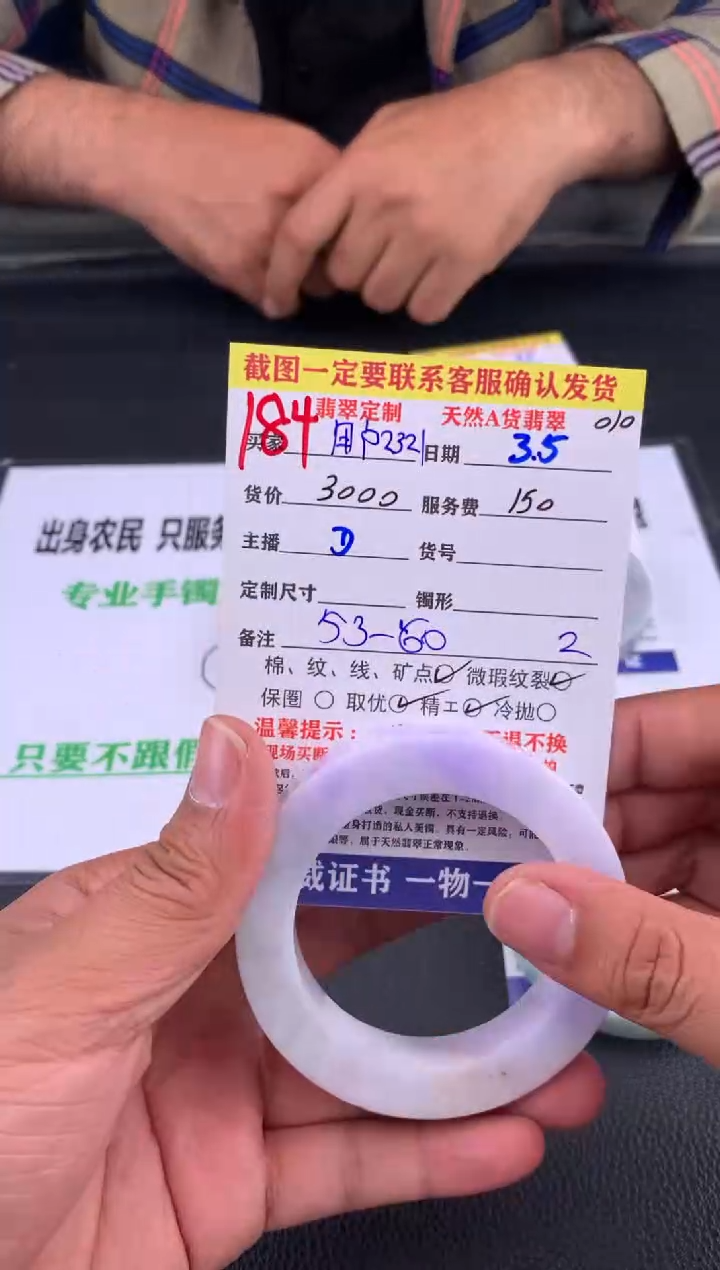 截图一定要联系客服确认发货
184 翡翠定制 天然A货翡翠 010
买家 用户2321 日期 3.5
货价 3000 服务费 150
主播 D 货号
定制尺寸 镯形
备注 53-60 2
棉、纹、线、矿点 微瑕纹裂
保圈 取优 精工 冷抛
温馨提示: 退不换
现场买断
现金买断，不支持退换
身打造的私人美镯，具有一定风险，可能
属于天然翡翠正常现象。
证书 一物一
出身农民 只服务
专业手镯
只要不跟假